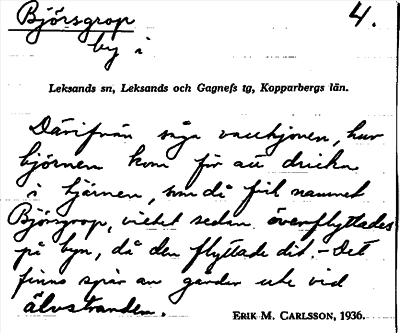 Björsgrop 4.
by i
Leksands sn, Leksands och Gagnefs tg, Kopparbergs län.
Därifrån såga vacchjonen, hur
björnen kom för att dricka
i tjärnen, som då fick namnet
Björsgrop, vilket sedan överflyttades
på byn, då den flyttade dit. – Det
finns spår av gårdar ute vid
älvstranden.
ERIK M. CARLSSON, 1936.